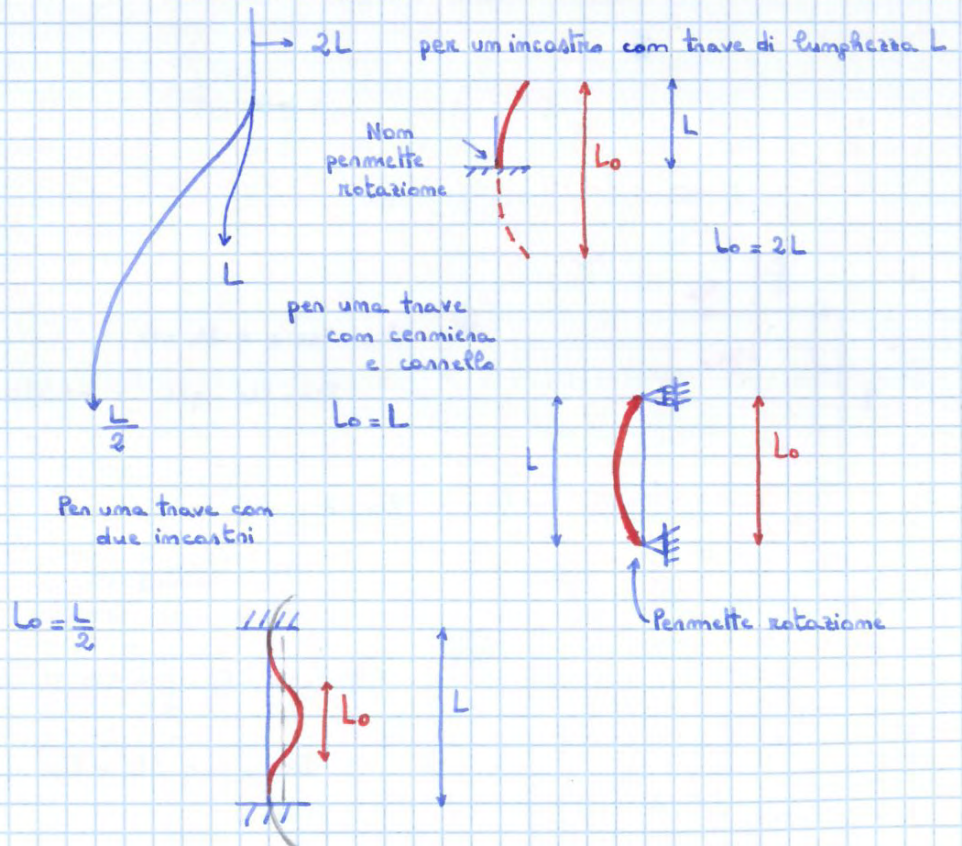 2L per un incastro con trave di lunghezza L
Non
permette
rotazione
L0
L
L0 = 2L
L
per una trave
con cerniera
e carrello
L/2
L0 = L
L
L0
Per una trave con
due incastri
Permette rotazione
L0 = L/2
L0
L